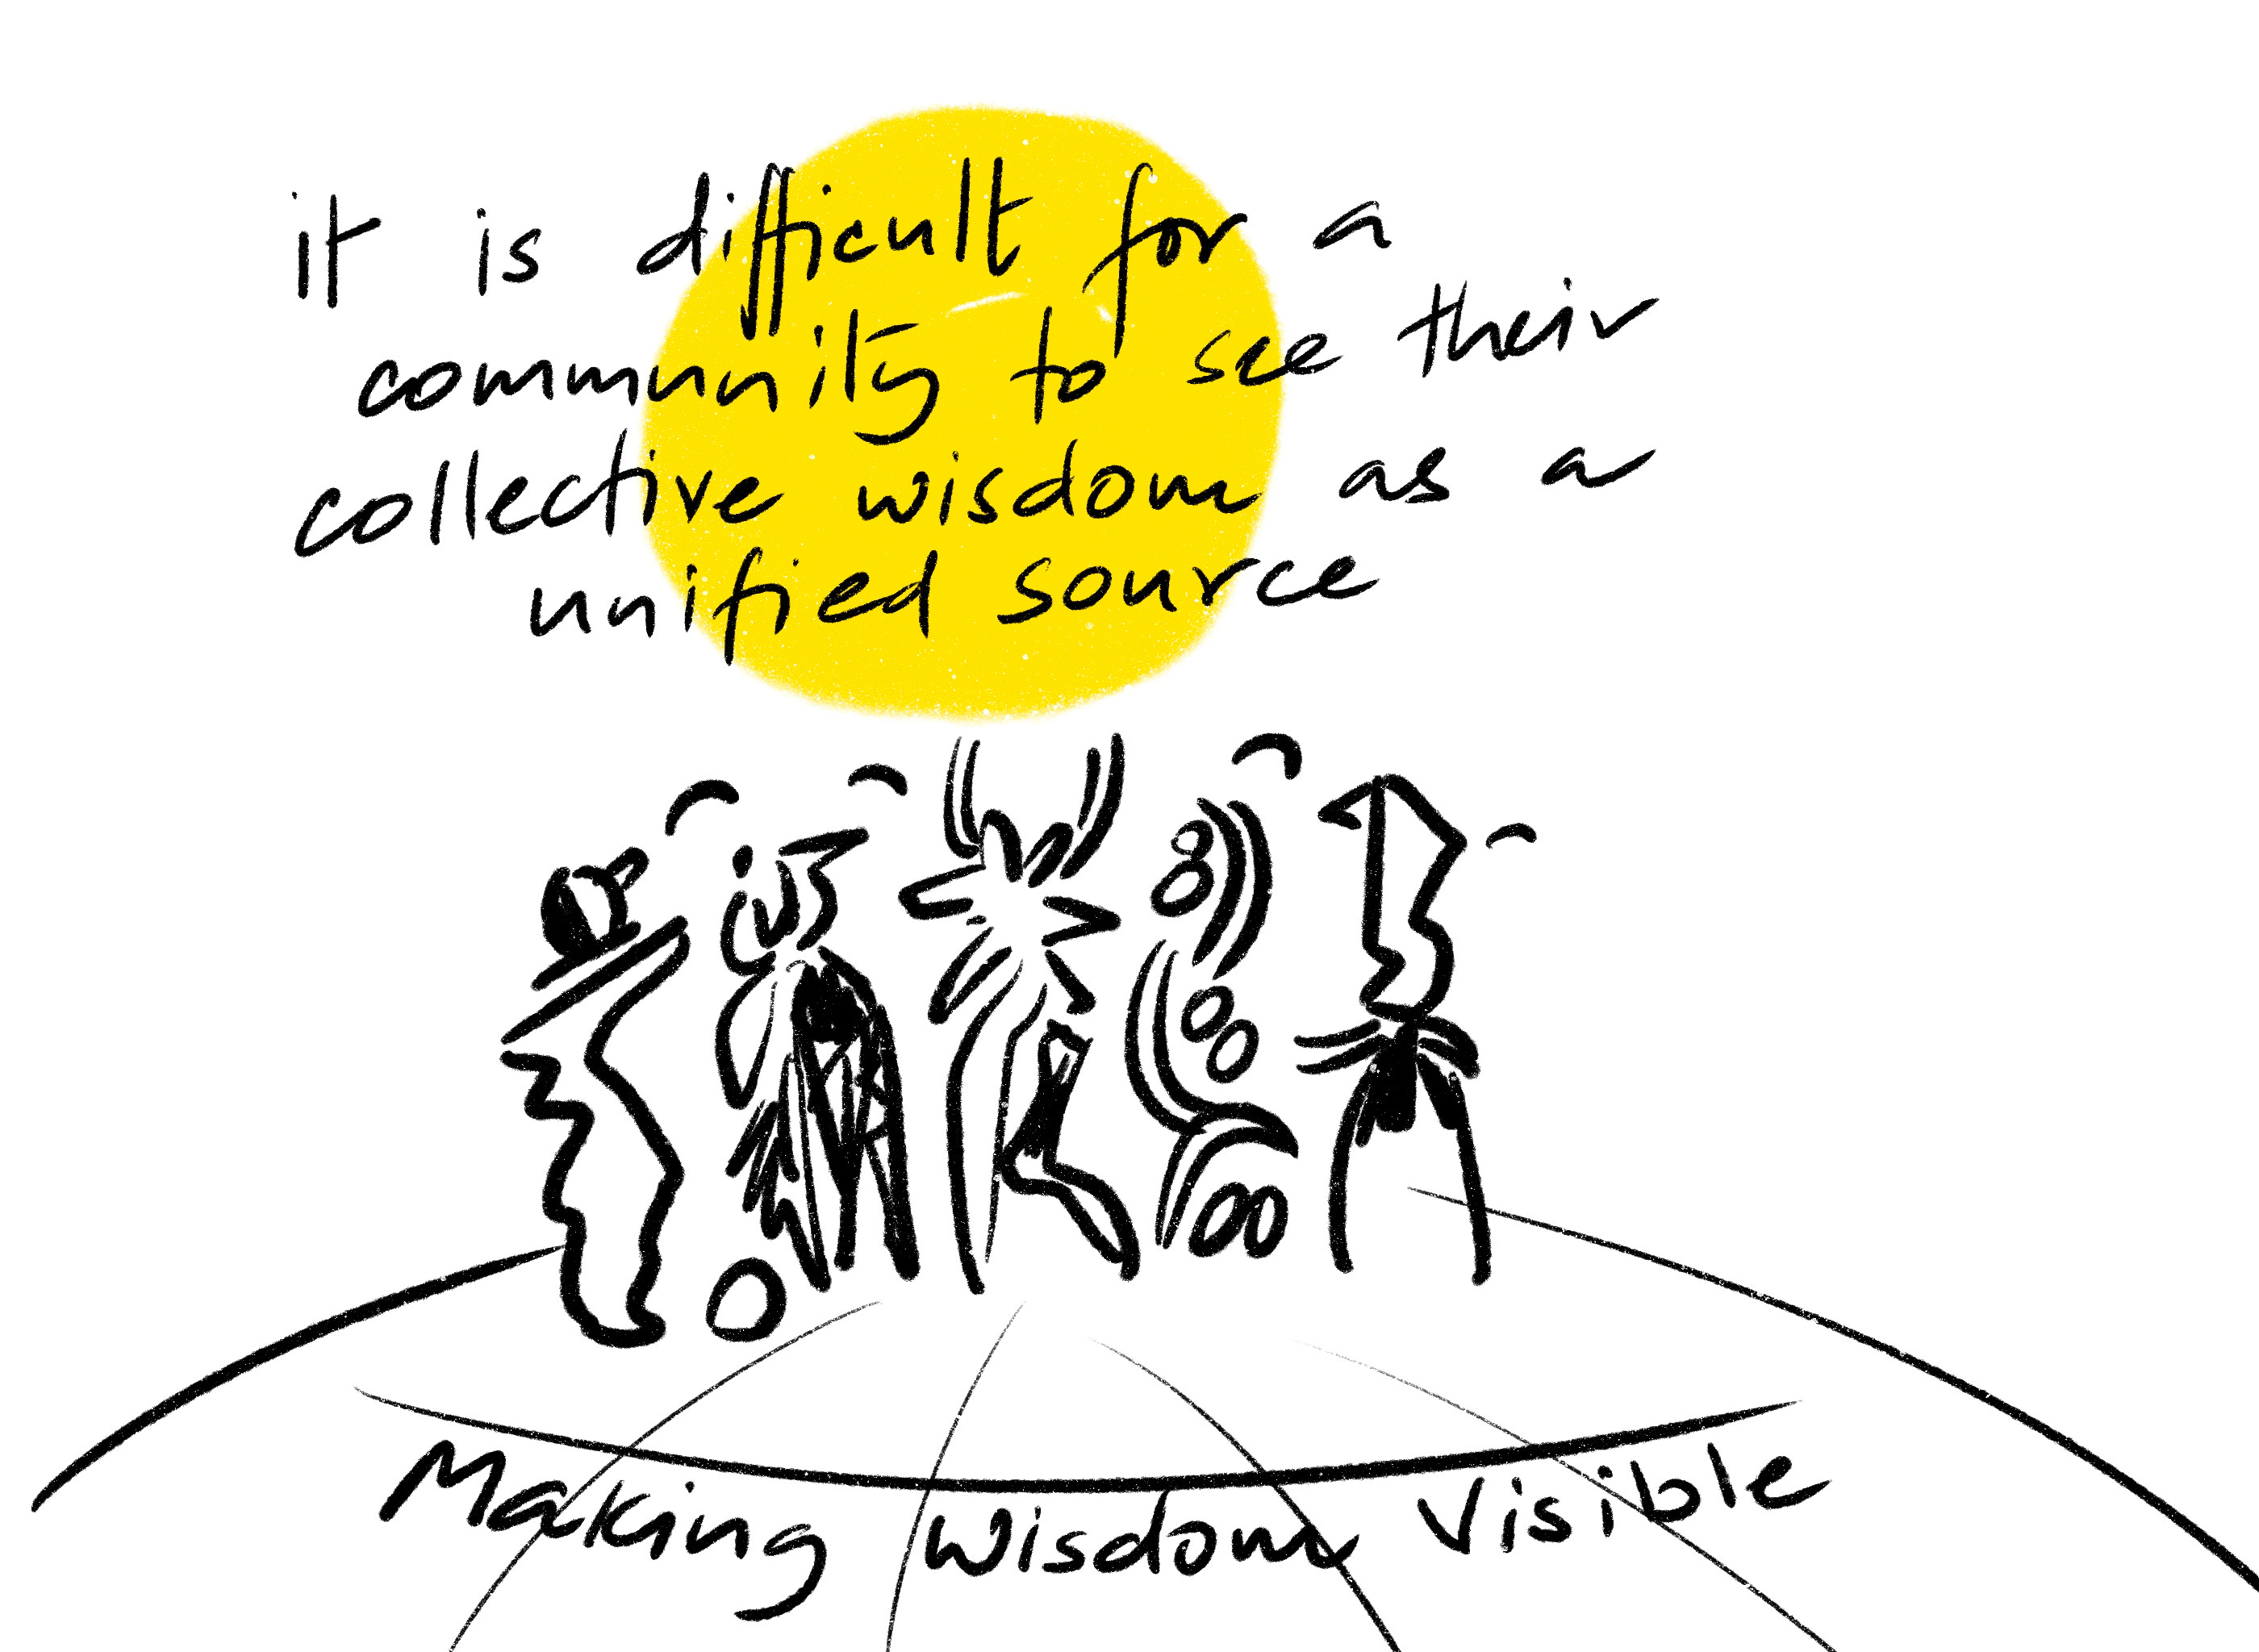 it is difficult for a
community to see their
collective wisdom as a
unified source
Making wisdom visible